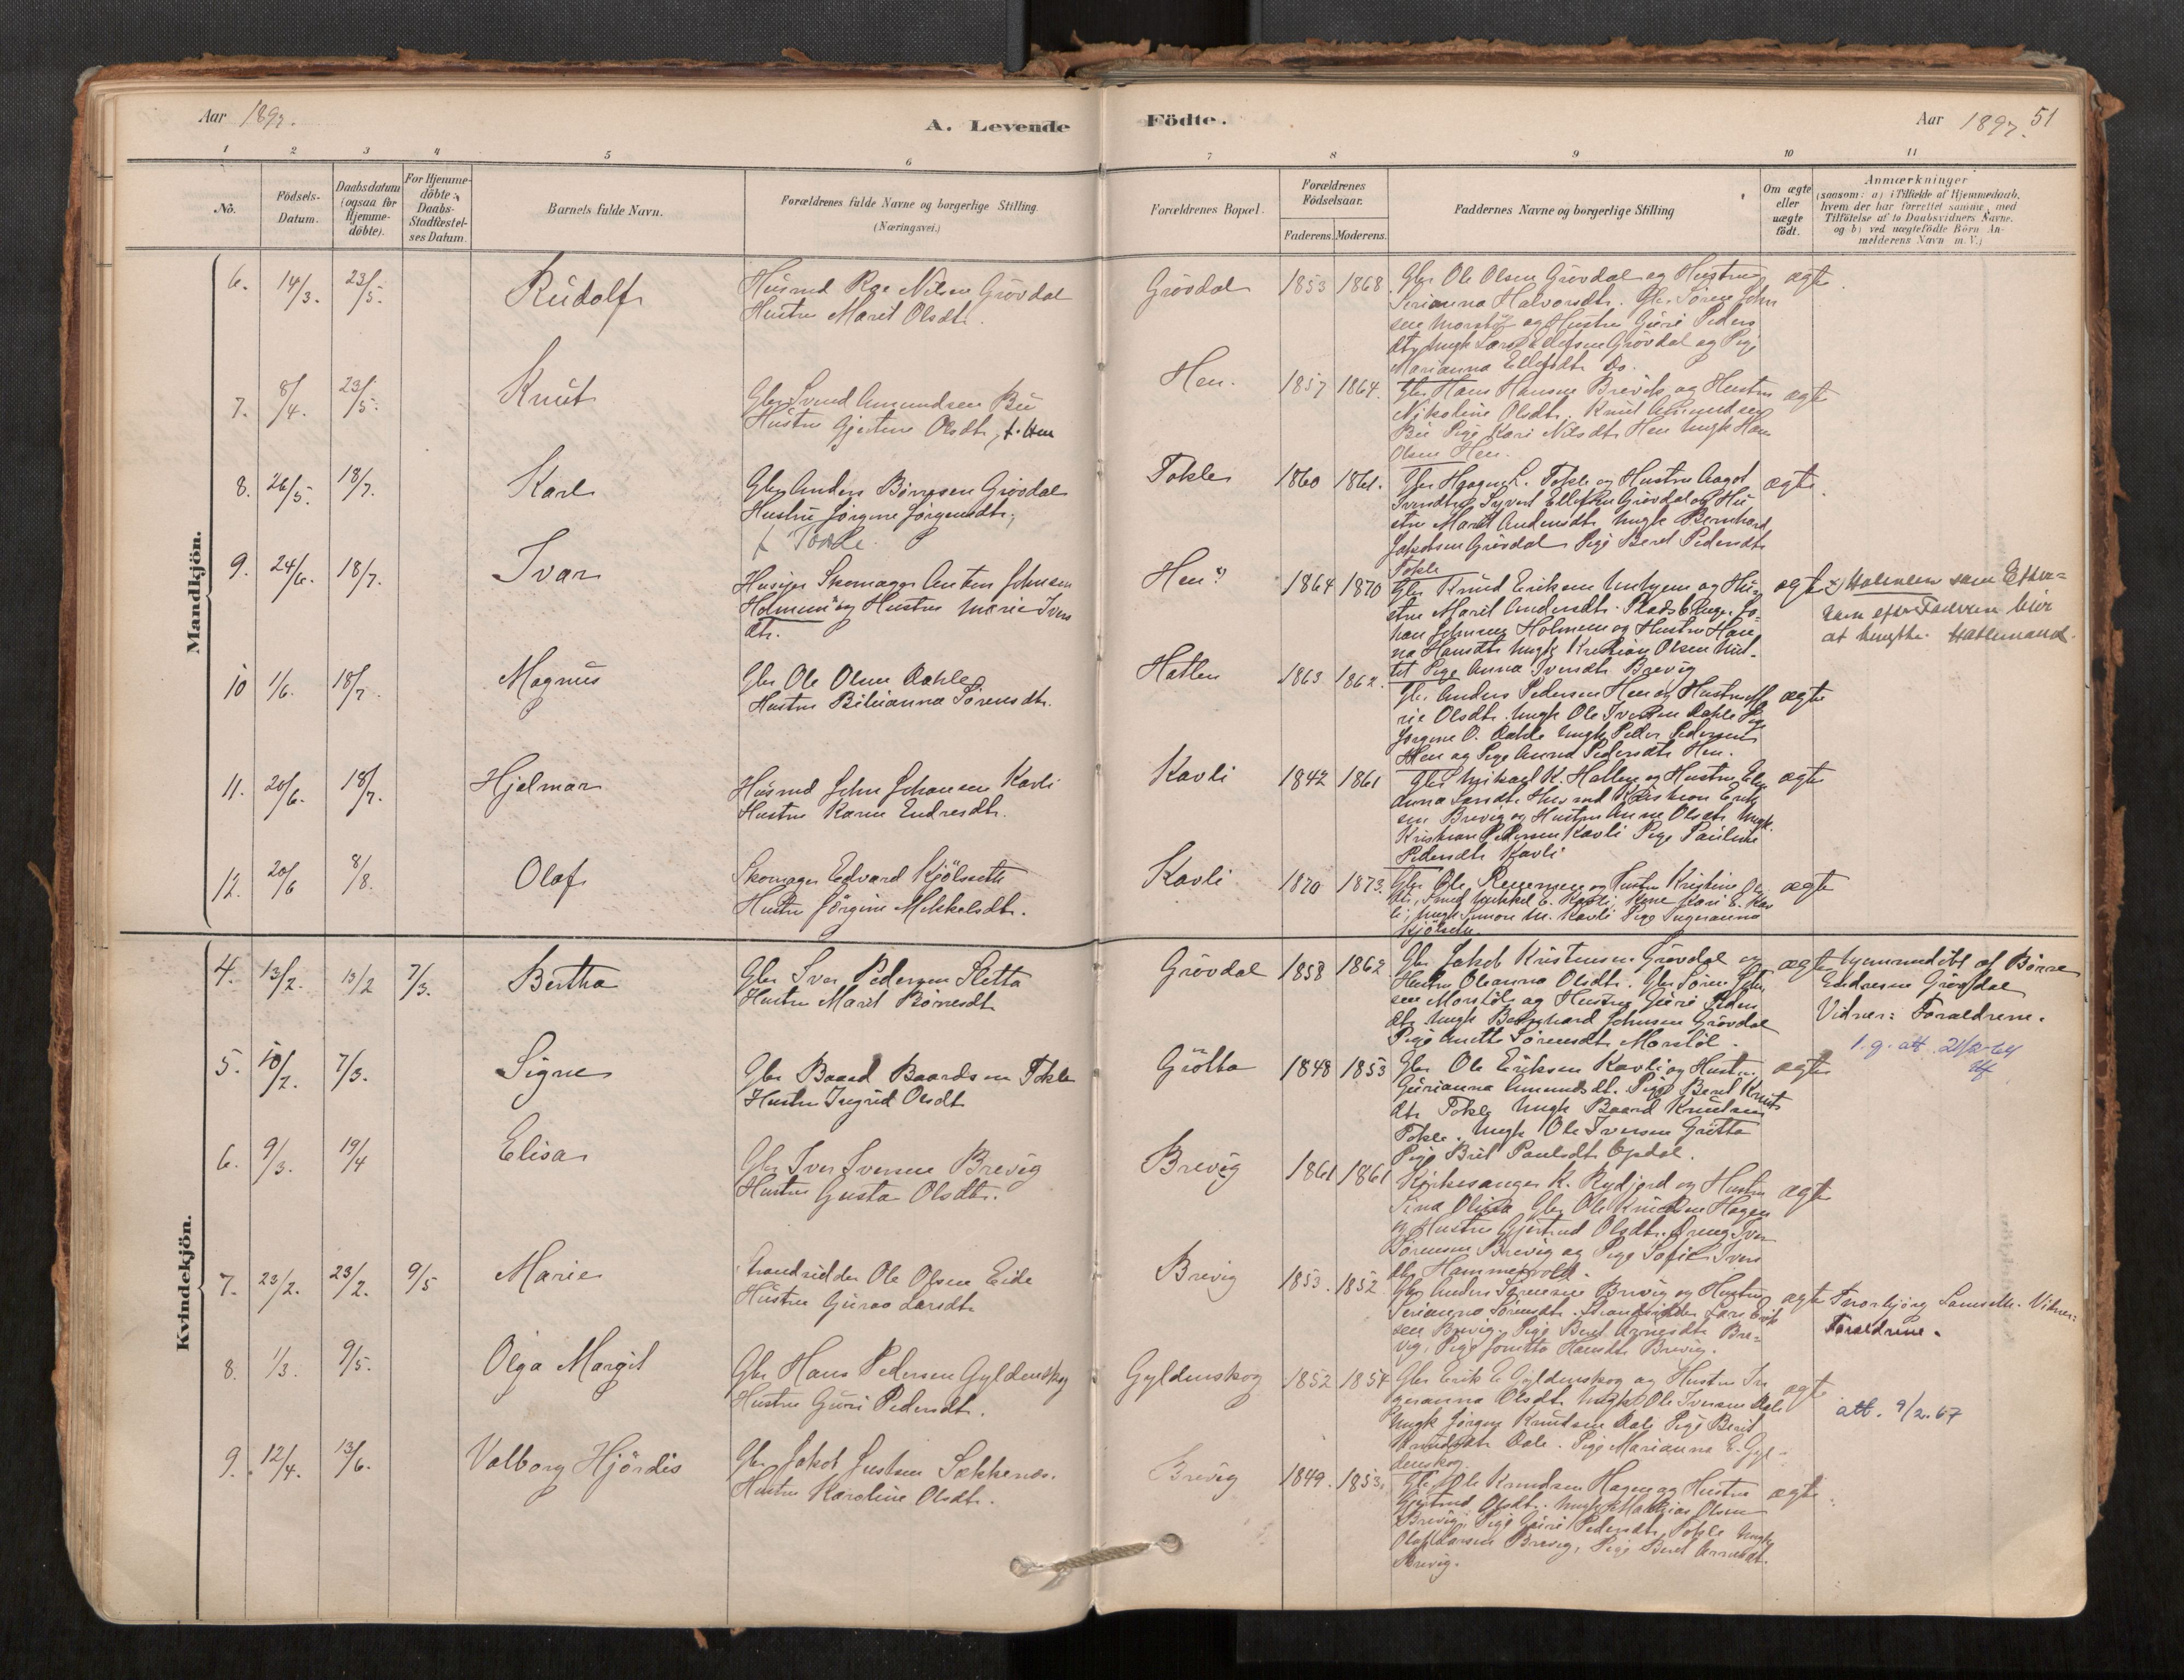 Aar 1897.
A. Levende Födte.
Aar 1897. 51
1 2 3 4 5 6 7 8 9 10 11
No.
Födsels-
Datum.
Daabsdatum
(ogsaa for
Hjemme-
döbte).
For Hjemme-
döbte
Daabs-
Stadfæstel-
ses Datum.
Barnets fulde Navn.
Forældrenes fulde Navne og borgerlige Stilling.
(Næringsvei.)
Forældrenes Bopæl.
Forældrenes
Födselsaar.
Faderens. Moderens.
Faddernes Navne og borgerlige Stilling
Om ægte
eller
uægte
födt.
Anmærkninger
(saasom: a) i Tilfælde af Hjemmedaab,
hvem der har forrettet samme, med
Tilföielse af to Daabsvidners Navne,
og b) ved uægtefödte Börn An-
melderens Navn m. V.)
Mandkjön.
6. 14/3. 23/5. Rudolf
Husmd Roe Nilsen Grövdal
Hustru Marit Olsdt.
Grövdal 1853 1868
Gbr Ole Olsen Grövdal og Hustru
Serianna Halvorsdt. Gbr. Sören John
sen Morstöl og Hustru Guri Peders
dtr, Ungk Lars Ellefsen Grövdal og Pige
Marianna Ellefsdt. do.
ægte
7. 8/4. 23/5. Knut
Gbr Svend Amundsen Bu
Hustru Gjertine Olsdt, f. Hen
Hen. 1857 1864.
Gbr Hans Hansen Brevik og Hustru
Nikoline Olsdt. Knut Amundsen
Bu Pige Kari Nilsdt. Hen Ungk Hans
Olsen Hen.
ægte
8. 26/5. 18/7. Karl
Gbr Anders Börresen Grövdal
Hustru Jörgine Jörgensdt.
f. Tokle.
Tokle 1860 1861.
Gbr Haagen L. Tokle og Hustru Aagot
Ivrsdtr Syvert Ellefsen Grövdal og Hu
stru Marit Andersdt. Ungk Bernhard
Jakobsen Grövdal Pige Beret Pedersdt
Tokle
ægte
9. 24/6. 18/7. Ivar
Husejer Skomager Anton Johnsen
Holmem og Hustru Marie Ivers
dtr.
Hen x) 1864 1870
Gbr Knud Eriksen Unhjem og Hu-
stru Marit Andersdt. Pladsbruger Jo-
han Johnsen Holmem og Hustru Han-
na Hansdt. Ungk Kristian Olsen
Pige Anna Iversdt. Brevig
ægte
x) Holmem som Efter-
navn efter Faderen blir
at benytte. Hatlemand.
10 1/6. 18/7. Magnus
Gbr Ole Olsen Aahle
Hustru Bilianna Sörensdt.
Hatlen 1863 1862.
Gbr. Anders Pedersen Hen og Hustru Ma
rie Olsdt. Ungk Ole Iversen Aahle Pige
Jörgine O. Aahle Ungk Peder Pedersen
Hen og Pige Anna Pedersdt. Hen.
ægte
11. 20/6. 18/7. Hjelmar
Husmd John Johansen Kavli
Hustru Karen Endresdt.
Kavli 1842 1861
Gbr Mikael K. Hatlen og Hustru Ele
anna Larsdt. Husmd Kristian Erik
sen Brevig og Hustru Anne Olsdt. Ungk.
Kristian Pedersen Kavli Pige Pauline
Pedersdt. Kavli
ægte
12. 20/6 8/8. Olaf
Skomager Edvard Kjölseth
Hustru Jörgine Mikkelsdt.
Kavli 1870 1873.
Gbr. Ole og Hustru Kristine Ols
dtr, Smed Mikkel E. Kavli, Kone Kari E. Kav
li, Ungk Simon M. Kavli Pige Ingeranna
Kjölseth
ægte
Kvindekjön.
4. 13/2. 13/2 7/3. Bertha
Gbr Iver Pedersen Sletta
Hustru Marit Börresdt
Grövdal 1858 1862
Gbr Jakob Kristensen Grövdal og
Hustru Oleanna Olsdt. Gbr Sören John
sen Morstöl og Hustru Guri Peders
dtr Ungk Bernhard Johnsen Grövdal
Pige Anette Sörensdt. Morstöl.
ægte
hjemmedöbt af Börre
Endresen Grövdal
Vidner: Forældrene.
5. 10/2. 7/3. Signe
Gbr Baard Baardsen Tokle
Hustru Ingrid Olsdt
Grötta 1848 1853
Gbr Ole Eriksen Kavli og Hustru
Gurianna Amundsdt. Pige Beret Knuts
dtr Tokle Ungk Baard Knutsen
Tokle. Ungk Ole Iversen Grötta
Pige Brit Paulsdt. Opdal.
ægte
1. g. att. 21/2-64
6. 9/3. 19/4 Elisa
Gbr Iver Iversen Brevig
Hustru Gusta Olsdtr.
Brevig 1861 1861
Kirkesanger K. Rydjord og Hustru
Sina Gbr Ole Knudsen Hagen
og Hustru Gjertrud Olsdt. Dreng Iver
Sörensen Brevig og Pige Sofie Ivers
dtr Hammervold.
ægte
7. 23/2. 23/2. 9/5 Marie
Strandsidder Ole Olsen Eide
Hustru Guroo Larsdt.
Brevig 1853. 1852
Gbr Anders Sörensen Brevig og Hustru
Serianna Sörensdt. Strandsidder Lars Erik
sen Brevig, Pige Beret Arnesdt. Bre-
vig, Pige Jonetta Hansdt. Brevig.
ægte
Thorbjörg Vidner:
Forældrene.
8. 1/3. 9/5. Olga Margit
Gbr Hans Pedersen Gyldenskog
Hustru Guri Pedersdt.
Gyldenskog 1852 1854
Gbr Erik E. Gyldenskog og Hustru In
geranna Olsdt. Ungk Ole Iversen Aale
Ungk Jörgen Knudsen Aale Pige Berit
Knudsdt. Aale. Pige Marianna E. Gyl-
denskog.
ægte
att. 9/2. 67
9. 12/4. 13/6. Valborg Hjördis
Gbr Jakob Justsen Sækkenes.
Hustru Karoline Olsdt.
Brevig 1849. 1853.
Gbr Ole Knudsen Hagen og Hustru
Gjertrud Olsdt. Ungk Mathias Olsen
Brevig, Pige Guri Pedersdt. Tokle Ungk
Olaf Larsen Brevig, Pige Beret Arnesdt.
Brevig.
ægte